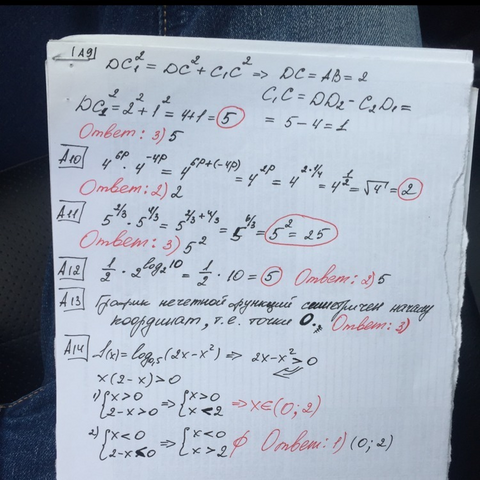 А9
DC₁² = DC² + C₁C² => DC = AB = 2
C₁C = DD₂ - C₂D₁ =
DC₂² = 2² + 1² = 4+1 = 5 = 5-4 = 1
Ответ: 3) 5
А10 4^6p · 4^-4p = 4^(6p+(-4p)) = 4^2p = 4^(2·1/4) = 4^(1/2) = √4 = 2
Ответ: 2) 2
А11 5^(2/3) · 5^(4/3) = 5^(2/3+4/3) = 5^(6/3) = 5² = 25
Ответ: 3) 5²
А12 1/2 · 2^(log₂10) = 1/2 · 10 = 5 Ответ: 2) 5
А13 График нечетной функции симетричен началу
координат, т.е. точки 0. Ответ: 3)
А14 f(x) = log₀,₅(2x-x²) => 2x-x² > 0
x(2-x) > 0
1) { x>0 2-x>0 => { x>0 x<2 => x∈(0;2)
2) { x<0 2-x<0 => { x<0 x>2 ∅ Ответ: 1) (0;2)